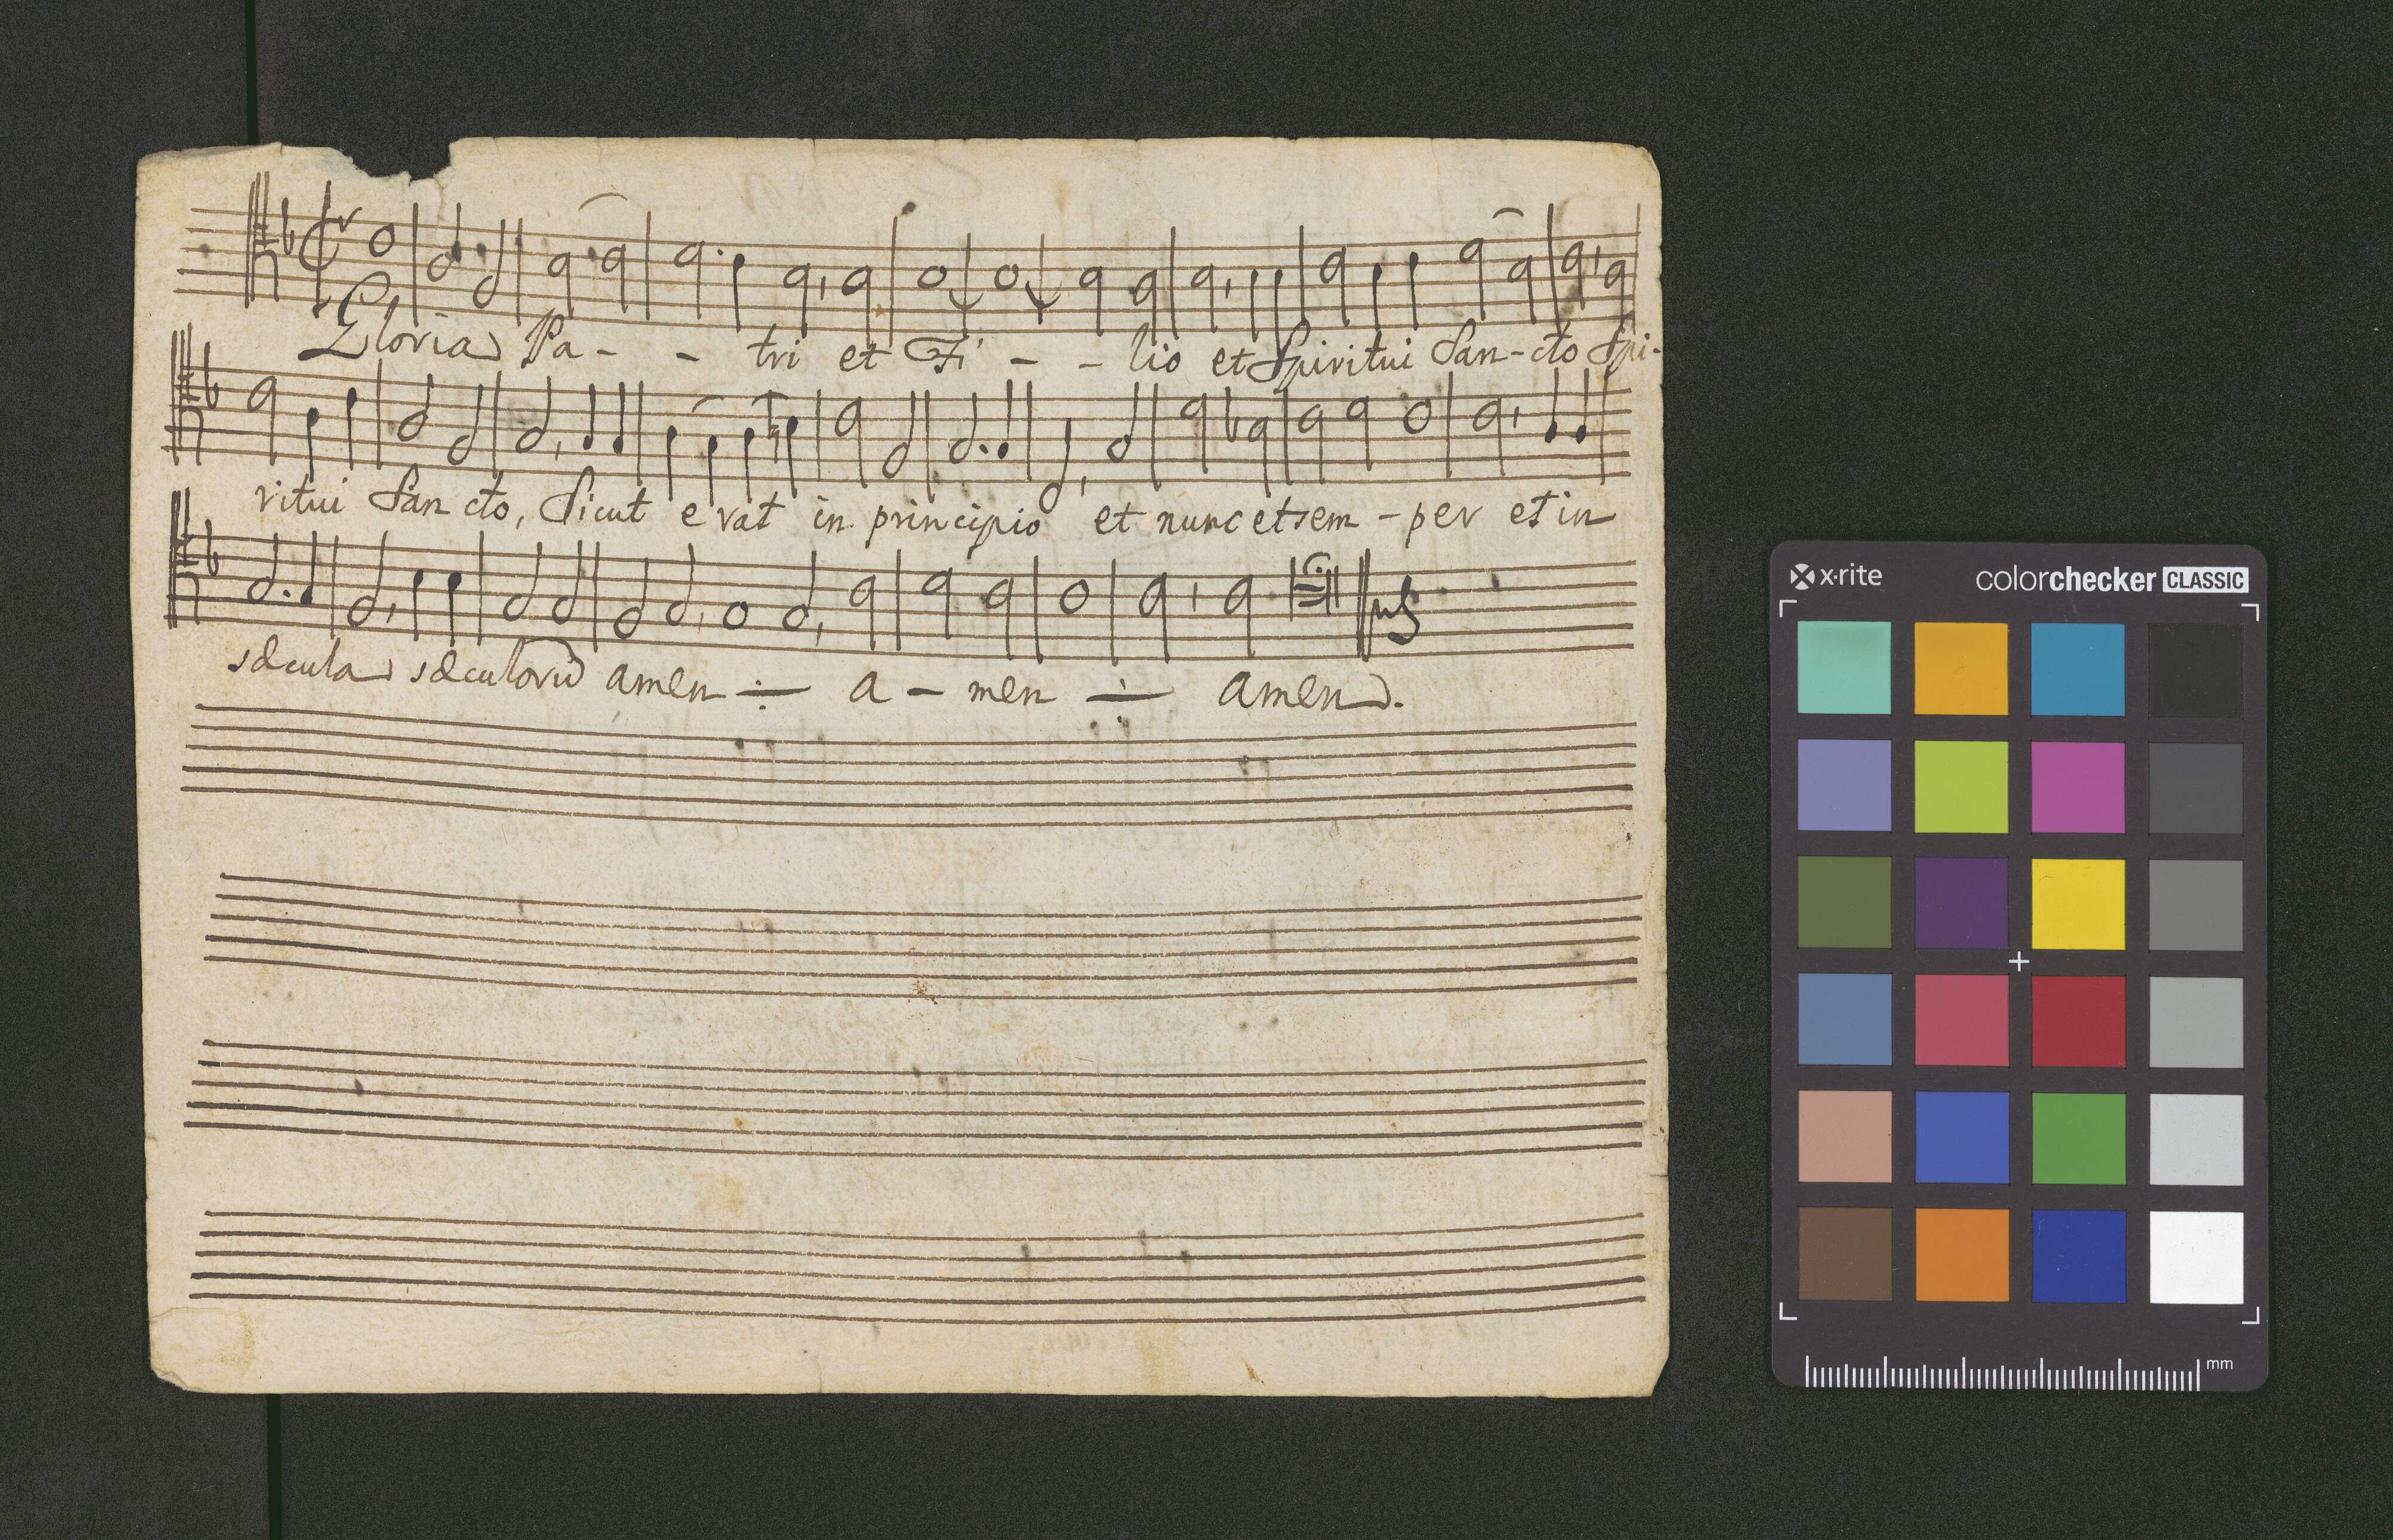 Gloria Pa - - tri et Fi - - lio et Spiritui San-cto Spi-
ritui San cto, Sicut e rat in principio et nunc et sem - per et in
sæcula sæculorũ amen ÷ a - men ÷ amen.
x·rite colorchecker CLASSIC
mm